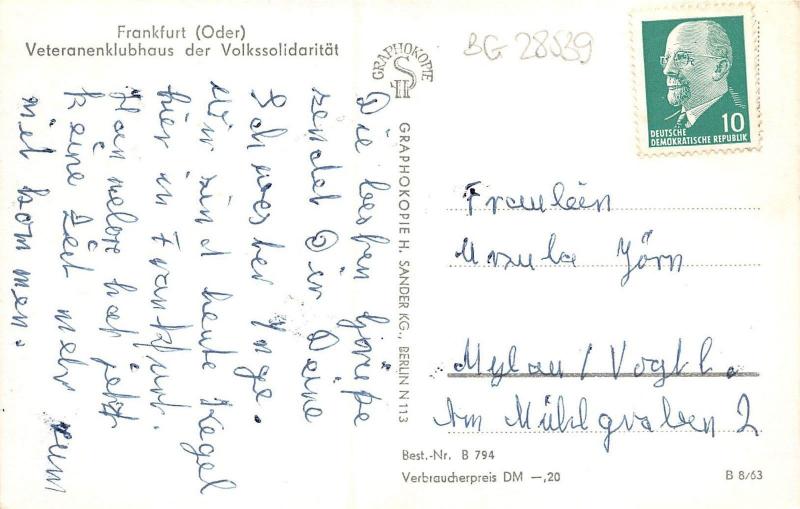 Frankfurt (Oder)
Veteranenklubhaus der Volkssolidarität
Die besten Grüße
sendet Dir Deine
Schwester Inge.
Wir sind heute Kegel
hier in Frankfurt.
Hannelore hat jetzt
keine Zeit mehr zum
mit kommen.
GRAPHOKOPIE
H S
GRAPHOKOPIE H. SANDER KG., BERLIN N 113
BG 28539
10
DEUTSCHE
DEMOKRATISCHE REPUBLIK
Fräulein
Ursula Jörn
Mylau / Vogtl.
Am Mühlgraben 2
Best.-Nr. B 794
Verbraucherpreis DM —,20
B 8/63